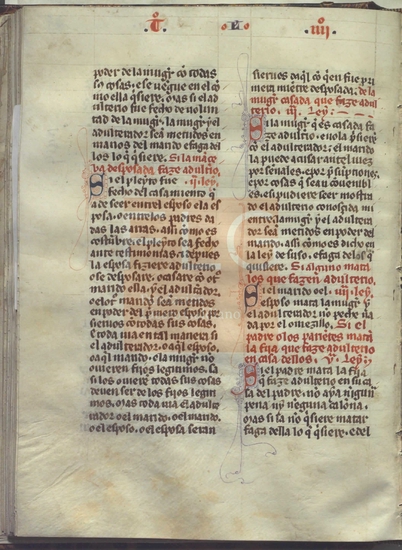 t o e o iiii
poder de la mugr cõ todas
sꝰ cosas, e se uegue en el co
mo ella q̃siere. mas si el ad
ulterio fue fecho de uolun
tad de la mugr, la mugr y el
adulterador seã metidos en
manos del marido e faga de
los lo q̃ q̃siere. Si la mãce
ba desposada faze adulterio,
Si el pleyto fue .ij. ley,
fecho del casamiento q̃
a de seer entrel esposo e la es
posa, o entrelos padres da
das las arras, assi como es
costũbre, e el pleyto sea fecho
ante testimonias, e depues
la esposa fiziere adulterio,
o se desposare, o casare cõ ot
marido ella y el adulterador,
o el ot marido seã metidos
en poder del pmero esposo por
sieruos cõ todas sus cosas.
E toda uia en tal manera si
el adulterador, o aq̃l esposo,
o aq̃l marido, o la mugr no
ouieren fijos legitimos. ca
si los ouiere todas sus cosas
deuen ser de los fijos legiti
mos, mas toda uia el adulte
rador o el marido, o el marido,
o el esposo, o el esposa seran
sieruos daq̃l cõ q̃en fue pri
mera miente desposada, de la
mugr casada que faze adul
terio. iij. ley:
Si la mugr q̃ es casada fa
ze adulterio, e nola prisierẽ
cõ el adulterador; el marido
la puede acusar ante l iuez
por señales, e por sũpciones,
e por cosas q̃ sea cõuenibl
es. e si pudiere seer mostra
do el adulterio conoscida mi
entre, la mugr y el adultera
dor seã metidos en poder del
marido, assi cõmo es dicho en
la ley de suso, e faga dellos q̃l
quisiere. Si alguno mata
los que fazen adulterio,
Si el marido o el .iiij. ley,
esposo mata la mugr y
el adulterador no peche na
da por el omezillo. Si el
padre o los parietes mata
la fija que faze adulterio
en casa dellos, v. ley:
Si el padre mata la fija
q̃ faze adulterio en su ca
sa del padre, no aya nigun
pena ni neguna calona,
mas si la no q̃siere matar
faga della lo q̃ q̃siere, e del